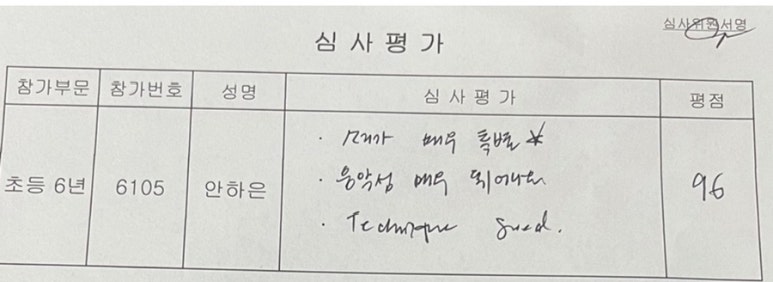 심사위원서명
심 사 평 가
참가부문 참가번호 성명 심 사 평 가 평점
초등 6년 6105 안하은 96
· 매우 특별
· 음악성 매우 뛰어나요
· Technique good.